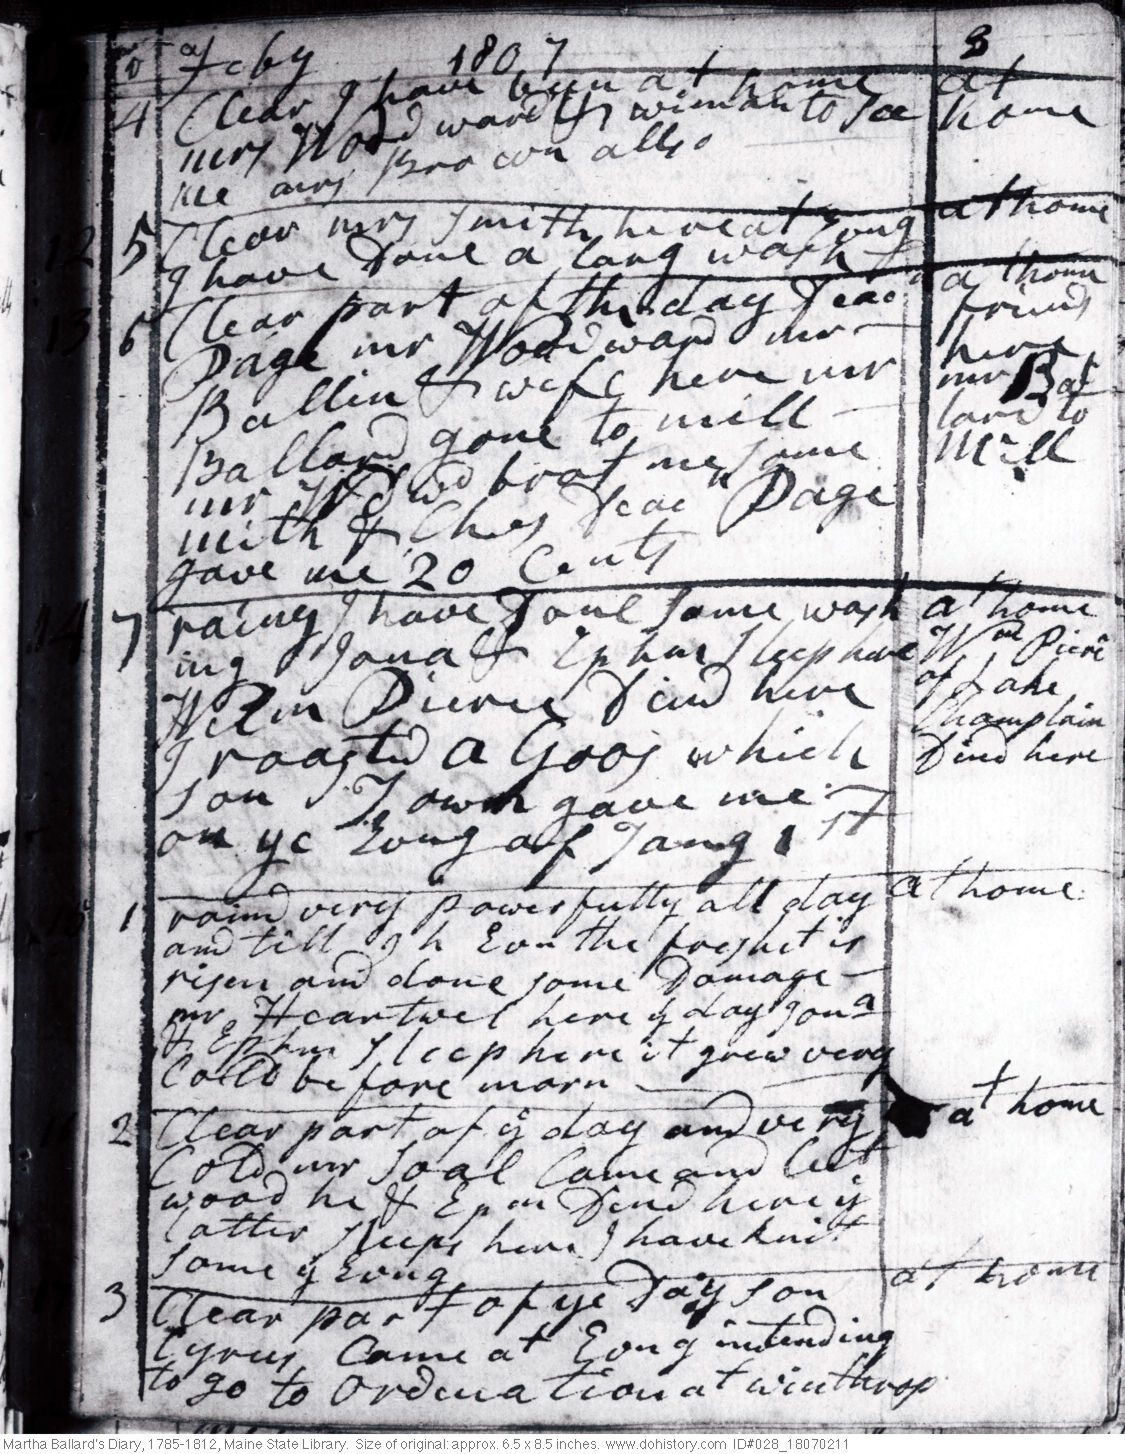 Feby 1807 3
4 Clear I have been at home at
mrs Woodward & wiman to See home
me mrs Brown allso
12 5 Clear mrs Smith here at Evng at home
I have Done a larg wash
13 6 Clear part of the day Deac at home
Page mr Woodward mr friends
Ballin & wife here mr here
Ballard gone to mill mr Bal
mr Wdwd brot me some lard to
mith & Ches Deac Page Mill
gave me 20 Cents
14 7 raing I have Done Some wash at home
ing Jona & Ephm Sleep here Wm Pierc
William Pierce Dind here of Lake
I roasted a Goos which Champlain
Son Town gave me Dind here
on ye Evng of Jany 1st
15 1 raind very powerfully all day at home
and till 9 h Evn the freshet is
risen and done some Damage
mr Heartwel here y day Jona
& Ephm Sleep here it grew very
Cold before morn
2 Clear part of y day and very at home
Cold mr Soal Came and Cut
wood he & Epm Dind here y
latter Sleeps here I have knit
some y Evng
3 Clear part of ye Day Son at home
Cyrus Came at Evng intending
to go to Ordination at winthrop
Martha Ballard's Diary, 1785-1812, Maine State Library. Size of original: approx. 6.5 x 8.5 inches. www.dohistory.com ID#028_18070211